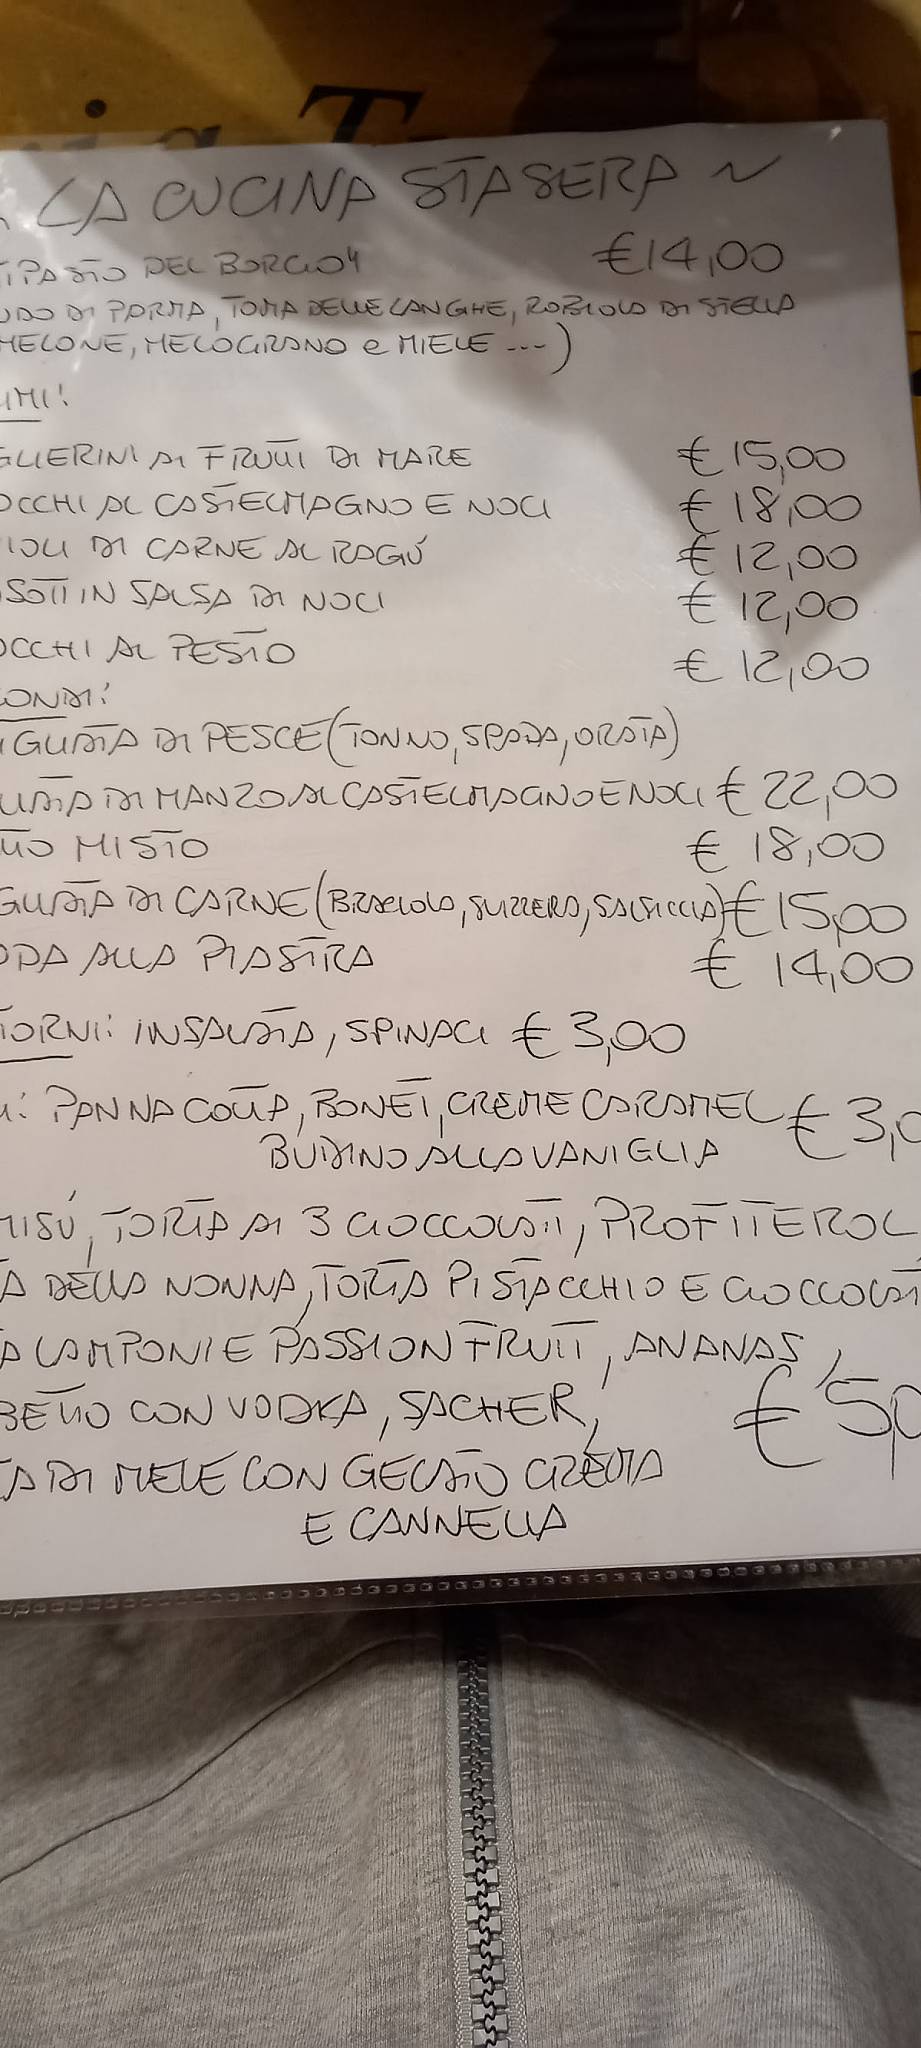 LA CUCINA STASERA ~
TIPASTO DEL BORGO" €14,00
UDO DI PARMA, TOMA DELLE LANGHE, ROBIOLA DI STELLA
MELONE, MELOGRANO e MIELE ....)
IMI:
GLIERINI AI FRUTTI DI MARE €15,00
OCCHI AL CASTELMAGNO E NOCI €18,00
IOLI DI CARNE AL RAGÚ €12,00
NSOTTI IN SALSA DI NOCI €12,00
OCCHI AL PESTO €12,00
CONDI:
IGLIATA DI PESCE (TONNO, SPADA, ORATA)
LIATA DI MANZO AL CASTELMAGNO E NOCI €22,00
TTO MISTO €18,00
GLIATA DI CARNE (BRACIOLA, SVIZZERA, SALSICCIA) €15,00
ADA ALLA PIASTRA €14,00
TORNI: INSALATA, SPINACI €3,00
I: PANNA COTTA, BONET, CREME CARAMEL €3,0
BUDINO ALLA VANIGLIA
MISÚ, TORTA AI 3 CIOCCOLATI, PROFITEROL
A DELLA NONNA, TORTA PISTACCHIO E CIOCCOLAT
A LAMPONI E PASSION FRUIT, ANANAS,
BETTO CON VODKA, SACHER, €5,0
TA DI MELE CON GELATO CREMA
E CANNELLA